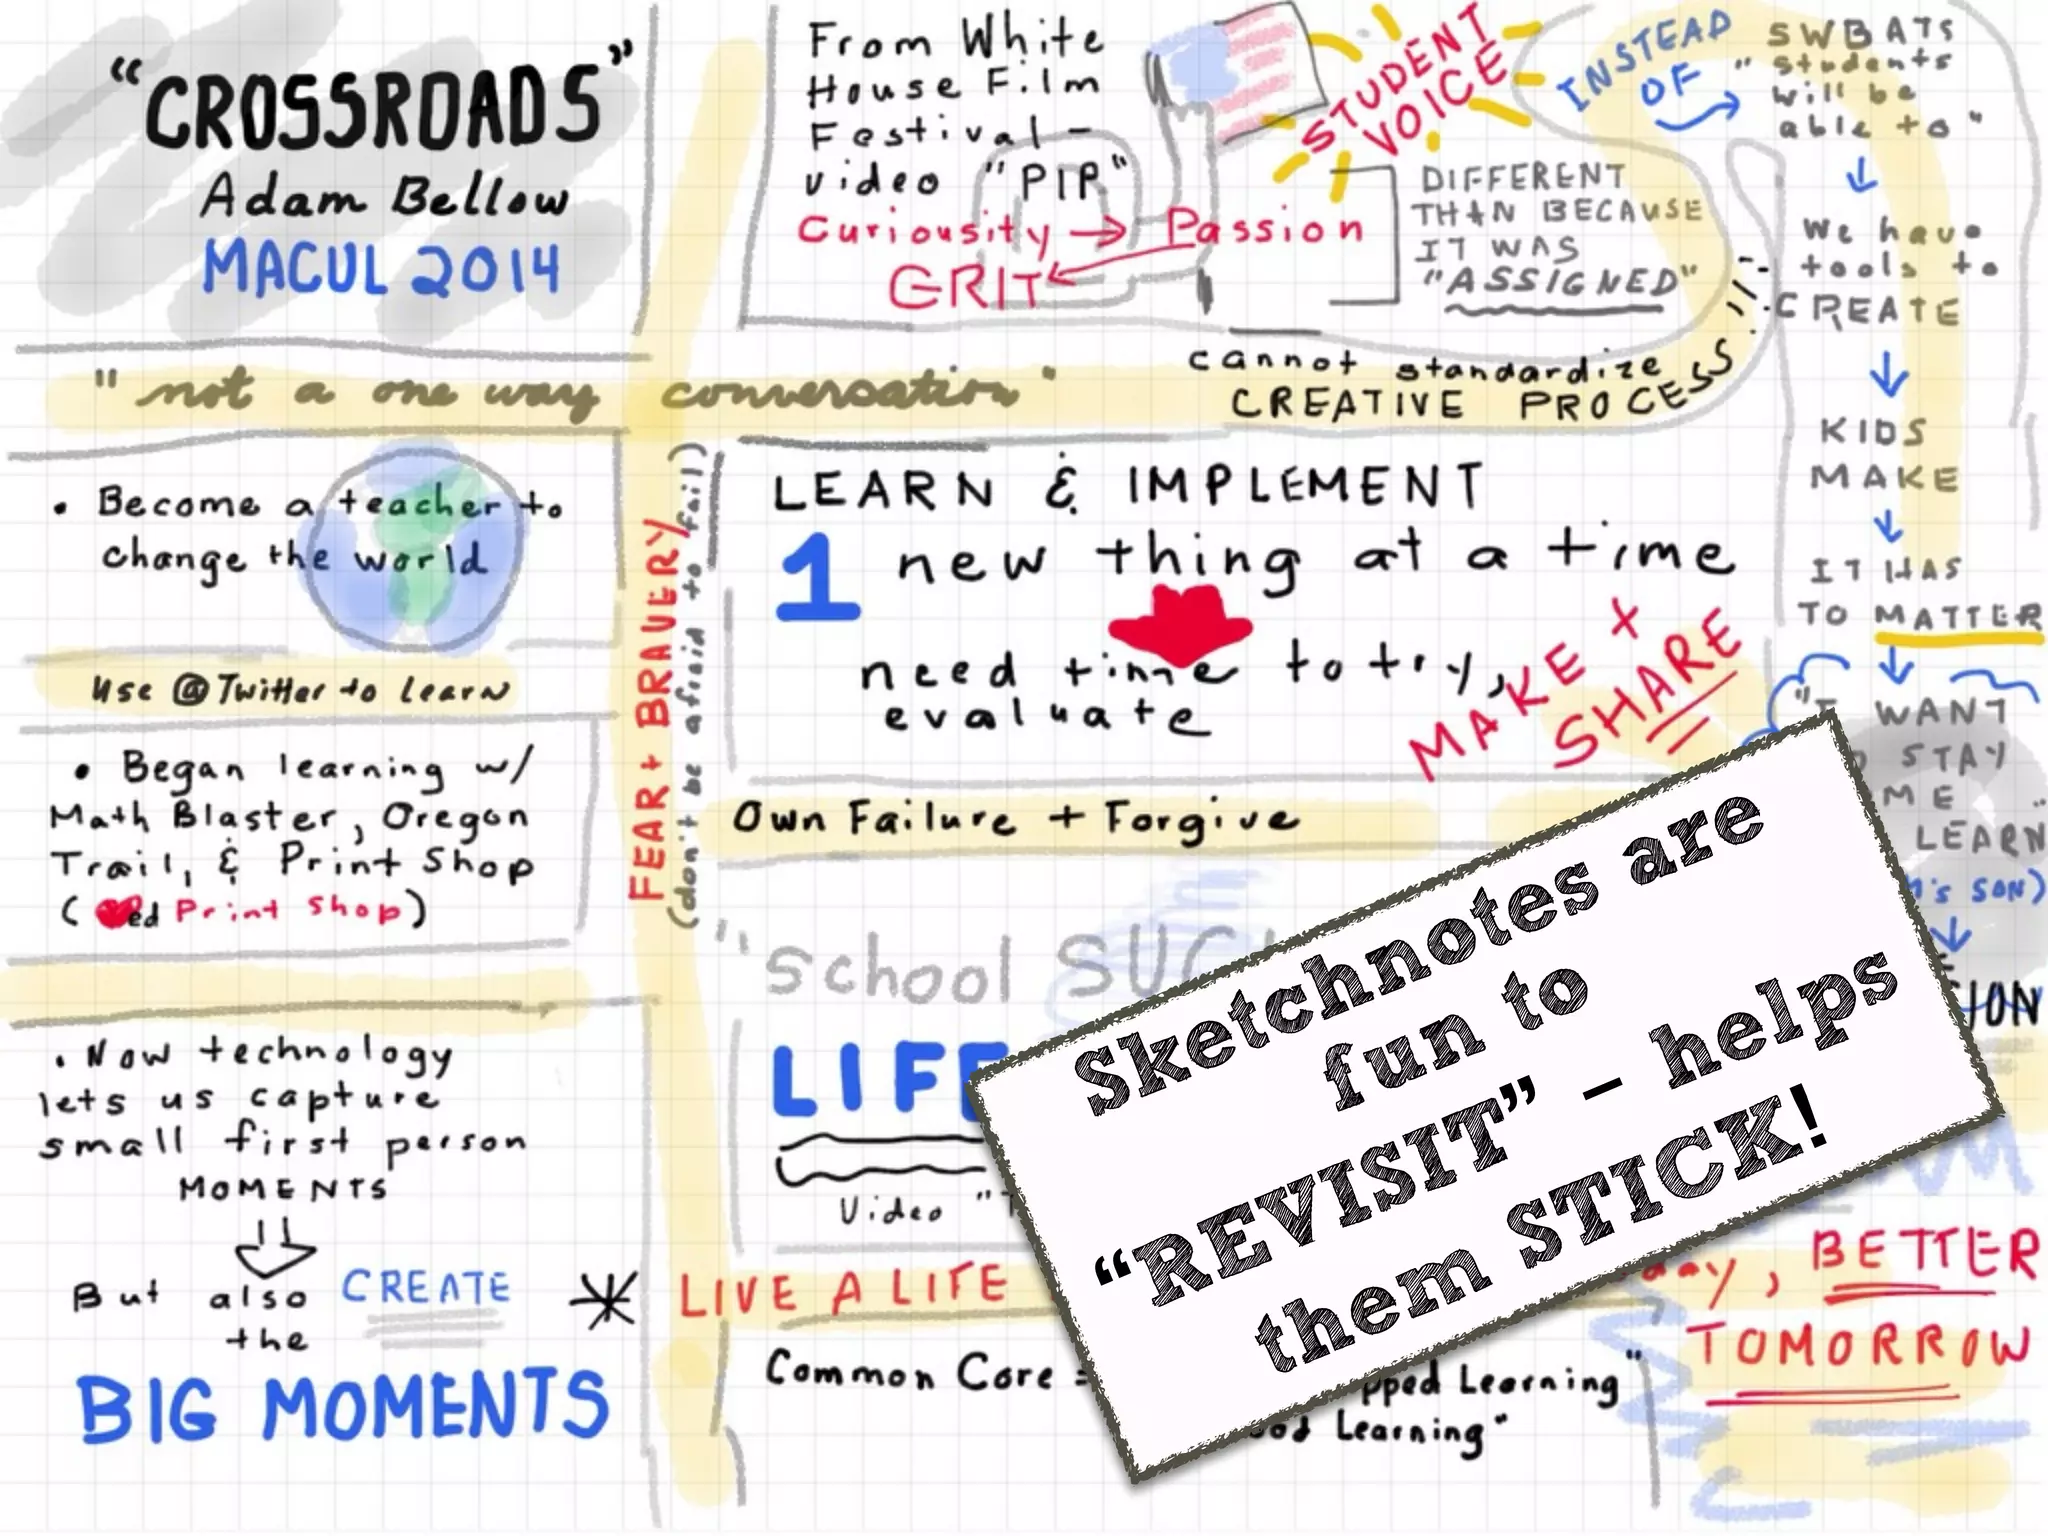 “CROSSROADS”
Adam Bellow
MACUL 2014
From White
House Film
Festival -
video "PIP"
Curiousity → Passion
GRIT
STUDENT
VOICE
DIFFERENT
THAN BECAUSE
IT WAS
"ASSIGNED"
INSTEAD
OF
SWBATS
"students
will be
able to"
We have
tools to
CREATE
KIDS
MAKE
IT HAS
TO MATTER
WANT
STAY
ME
LEARN
SON)
"not a one way conversation"
cannot standardize
CREATIVE PROCESS
• Become a teacher to
change the world
use @Twitter to learn
• Began learning w/
Math Blaster, Oregon
Trail, & Print Shop
(♥ed Print Shop)
FEAR + BRAVERY
(don't be afraid to fail)
LEARN & IMPLEMENT
1 new thing at a time
need time to try,
evaluate
MAKE +
SHARE
Own Failure + Forgive
"School
LIFE
Video
• Now technology
lets us capture
small first person
MOMENTS
But also CREATE
the
BIG MOMENTS
LIVE A LIFE
, BETTER
TOMORROW
Common Core =
Learning"
Learning"
Sketchnotes are
fun to
“REVISIT” – helps
them STICK!